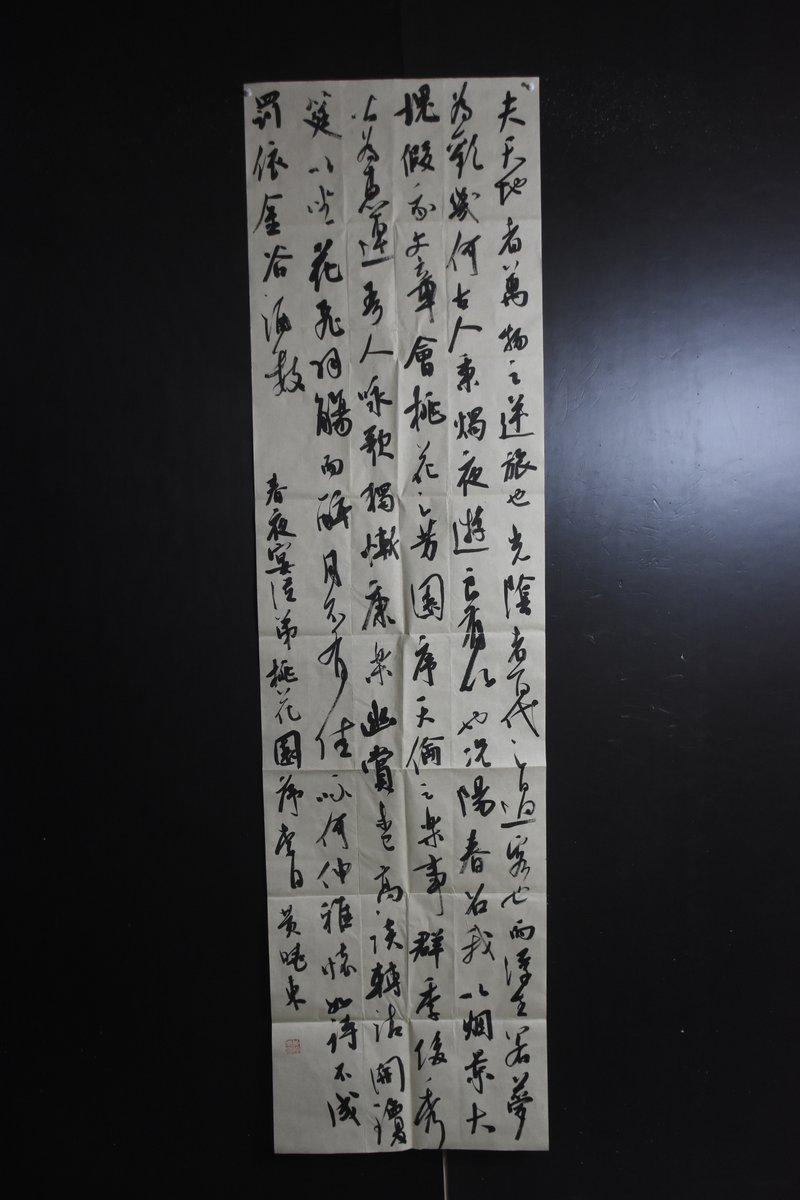 夫天地者萬物之逆旅也光陰者百代之過客也而浮生若夢
為歡幾何古人秉燭夜遊良有以也況陽春召我以烟景大
塊假我文章會桃花之芳園序天倫之樂事群季俊秀
為惠連吾人咏歌獨慚康樂幽賞未已高談轉清開瓊
筵以坐花飛羽觴而醉月不有佳咏何伸雅懷如詩不成
罰依金谷酒數
春夜宴從弟桃花園序李白 黄曉東